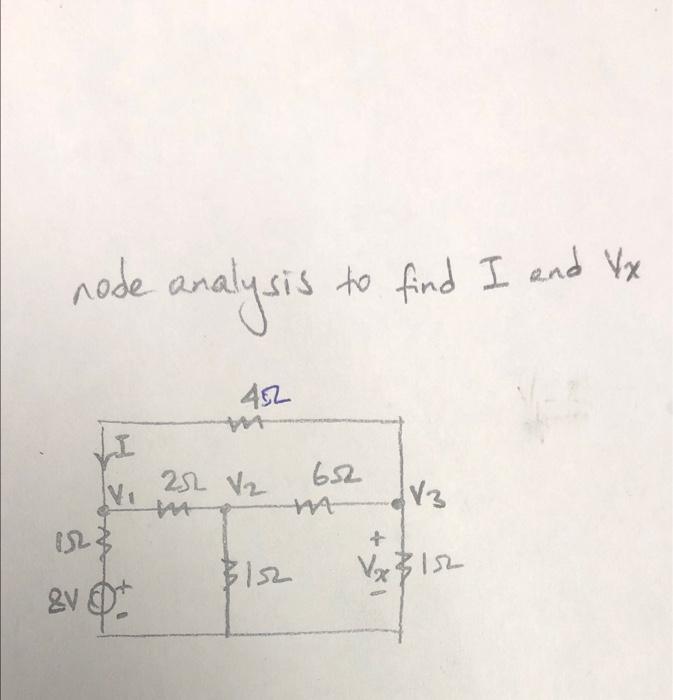 node analysis to find I and Vx
4Ω
I
V1 2Ω V2 6Ω V3
1Ω
1Ω
+
Vx 1Ω
-
8V +
-